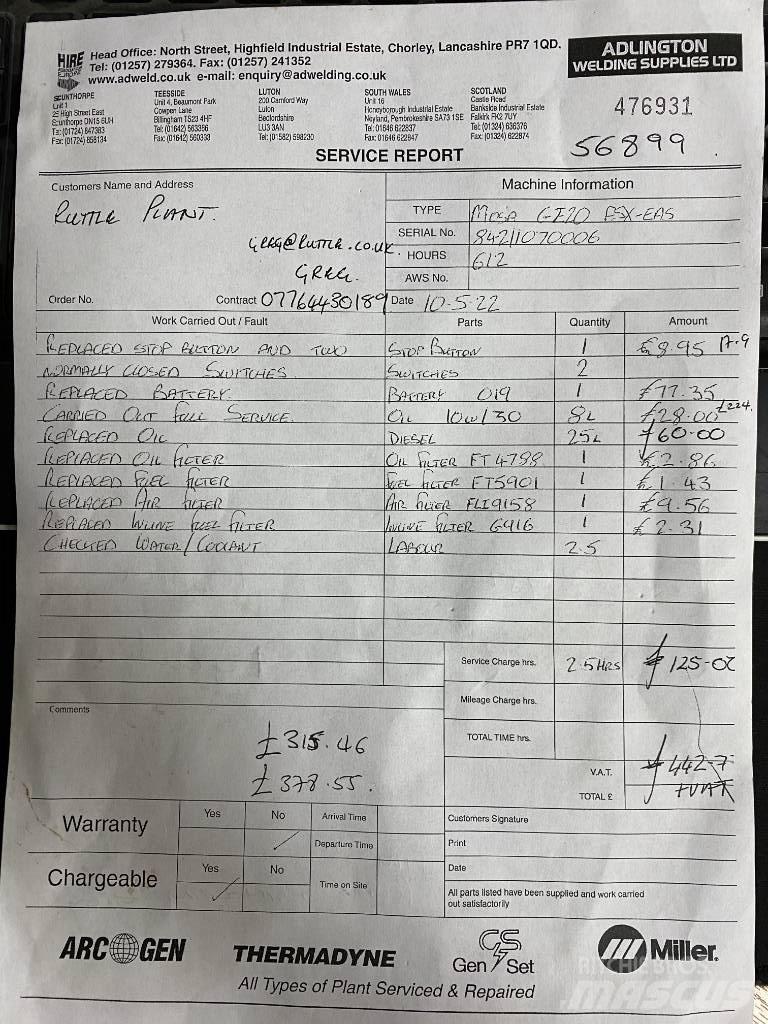 HIRE
Head Office: North Street, Highfield Industrial Estate, Chorley, Lancashire PR7 1QD.
Tel: (01257) 279364. Fax: (01257) 241352
www.adweld.co.uk e-mail: enquiry@adwelding.co.uk
ADLINGTON
WELDING SUPPLIES LTD
SCUNTHORPE
Unit 1
25 High Street East
Scunthorpe DN15 6UH
Tel: (01724) 847383
Fax: (01724) 858134
TEESIDE
Unit 4, Beaumont Park
Cowpen Lane
Billingham TS23 4HF
Tel: (01642) 563366
Fax: (01642) 560333
LUTON
200 Camford Way
Luton
Bedfordshire
LU3 3AN
Tel: (01582) 598230
SOUTH WALES
Unit 16
Honeyborough Industrial Estate
Neyland, Pembrokeshire SA73 1SE
Tel: 01646 622837
Fax: 01646 622847
SCOTLAND
Castle Road
Bankside Industrial Estate
Falkirk FK2 7UY
Tel: (01324) 636376
Fax: (01324) 622874
476931
56899
SERVICE REPORT
Customers Name and Address
RUTTLE PLANT.
GREG@RUTTLE.CO.UK
GREG.
Order No.
Contract 07764430189
Machine Information
TYPE MOSA GE20 PSX-EAS
SERIAL No. 84211070006
HOURS 612
AWS No.
Date 10-5-22
Work Carried Out / Fault Parts Quantity Amount
REPLACED STOP BUTTON AND TWO STOP BUTTON 1 £8.95 17.9
NORMALLY CLOSED SWITCHES SWITCHES 2
REPLACED BATTERY. BATTERY 019 1 £77.35
CARRIED OUT FULL SERVICE. OIL 10W/30 8L £28.00 £224.
REPLACED OIL DIESEL 25L £60.00
REPLACED OIL FILTER OIL FILTER FT4798 1 £2.86
REPLACED FUEL FILTER FUEL FILTER FT5901 1 £1.43
REPLACED AIR FILTER AIR FILTER FLI9158 1 £9.56
REPLACED INLINE FUEL FILTER INLINE FILTER G916 1 £2.31
CHECKED WATER/COOLANT LABOUR 2.5
Service Charge hrs. 2.5HRS £125-00
Mileage Charge hrs.
TOTAL TIME hrs.
Comments
£315.46
£378.55.
V.A.T. £442-7
TOTAL £ +VAT
Warranty
Yes No
Chargeable
Yes No
Arrival Time
Departure Time
Time on Site
Customers Signature
Print
Date
All parts listed have been supplied and work carried
out satisfactorily
ARC GEN
THERMADYNE
GS
Gen Set
Miller.
All Types of Plant Serviced & Repaired
RITCHIE BROS.
MASCUS